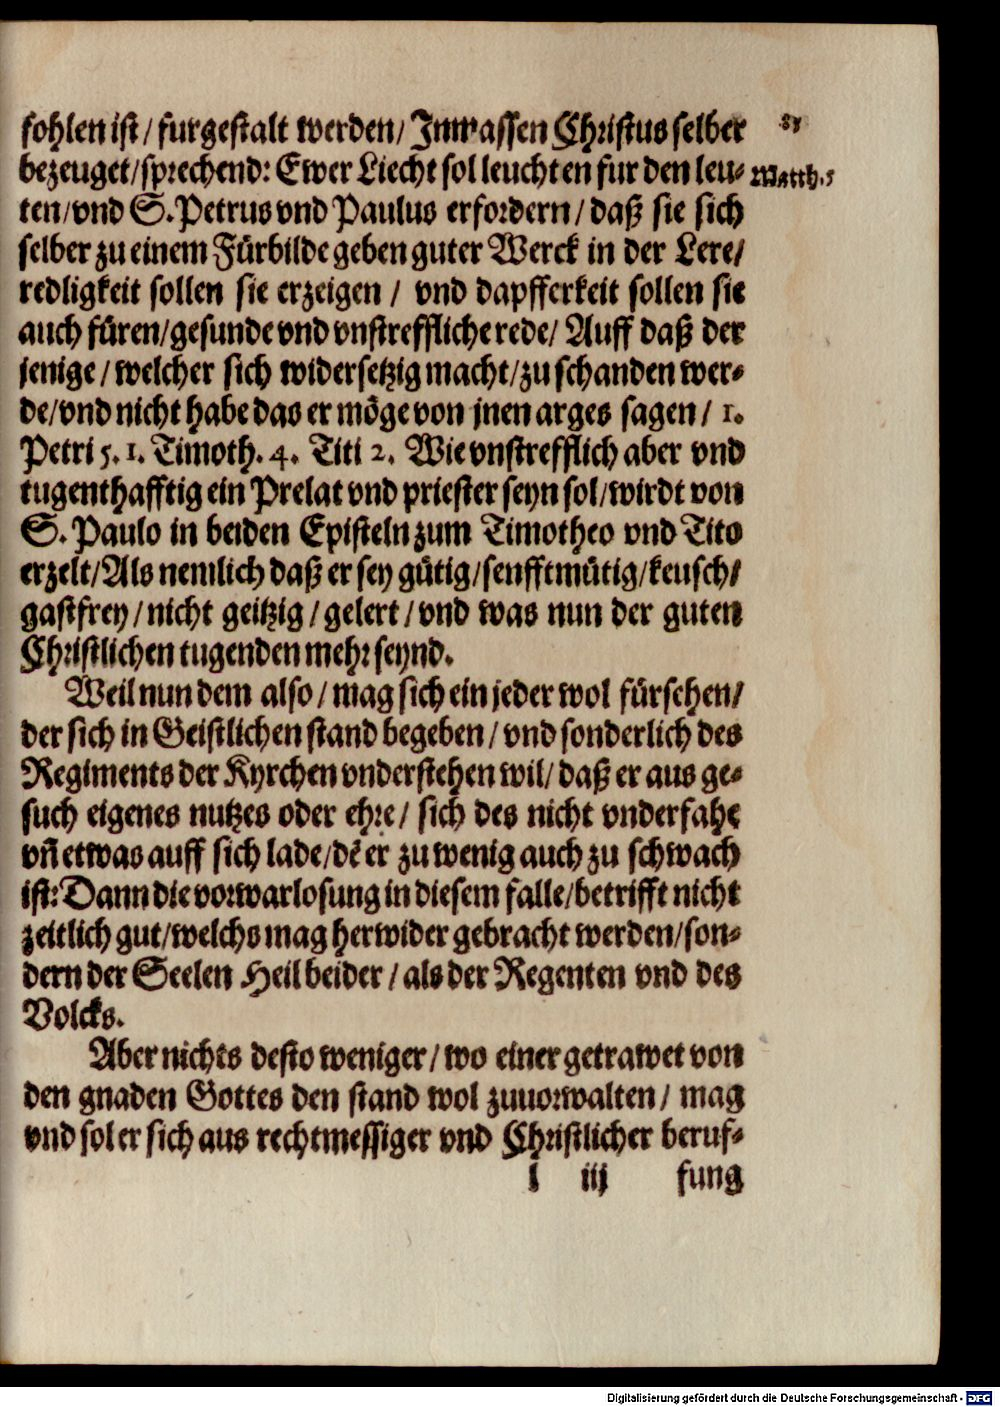 fohlen ist / furgestalt werden / Inmassen Christus selber
81
bezeuget / sprechend: Ewer Liecht sol leuchten fur den leu-
Matth.5
ten / vnd S. Petrus vnd Paulus erfordern / daß sie sich
selber zu einem Fürbilde geben guter Werck in der Lere /
redligkeit sollen sie erzeigen / vnd dapfferkeit sollen sie
auch füren / gesunde vnd vnstreffliche rede / Auff daß der
jenige / welcher sich widersetzig macht / zu schanden wer-
de / vnd nicht habe das er möge von jnen arges sagen / 1.
Petri 5. 1. Timoth. 4. Titi 2. Wie vnstrefflich aber vnd
tugenthafftig ein Prelat vnd priester seyn sol / wirdt von
S. Paulo in beiden Episteln zum Timotheo vnd Tito
erzelt / Als nemlich daß er sey gütig / senfftmütig / keusch /
gastfrey / nicht geitzig / gelert / vnd was nun der guten
Christlichen tugenden mehr seynd.
Weil nun dem also / mag sich ein jeder wol fürsehen /
der sich in Geistlichen stand begeben / vnd sonderlich des
Regiments der Kyrchen vnderstehen wil / daß er aus ge-
such eigenes nutzes oder ehre / sich des nicht vnderfahe
vñ etwas auff sich lade / dẽ er zu wenig auch zu schwach
ist: Dann die vorwarlosung in diesem falle / betrifft nicht
zeitlich gut / welchs mag herwider gebracht werden / son-
dern der Seelen Heil beider / als der Regenten vnd des
Volcks.
Aber nichts desto weniger / wo einer getrawet von
den gnaden Gottes den stand wol zuuorwalten / mag
vnd sol er sich aus rechtmessiger vnd Christlicher beruf-
l iij fung
Digitalisierung gefördert durch die Deutsche Forschungsgemeinschaft - DFG